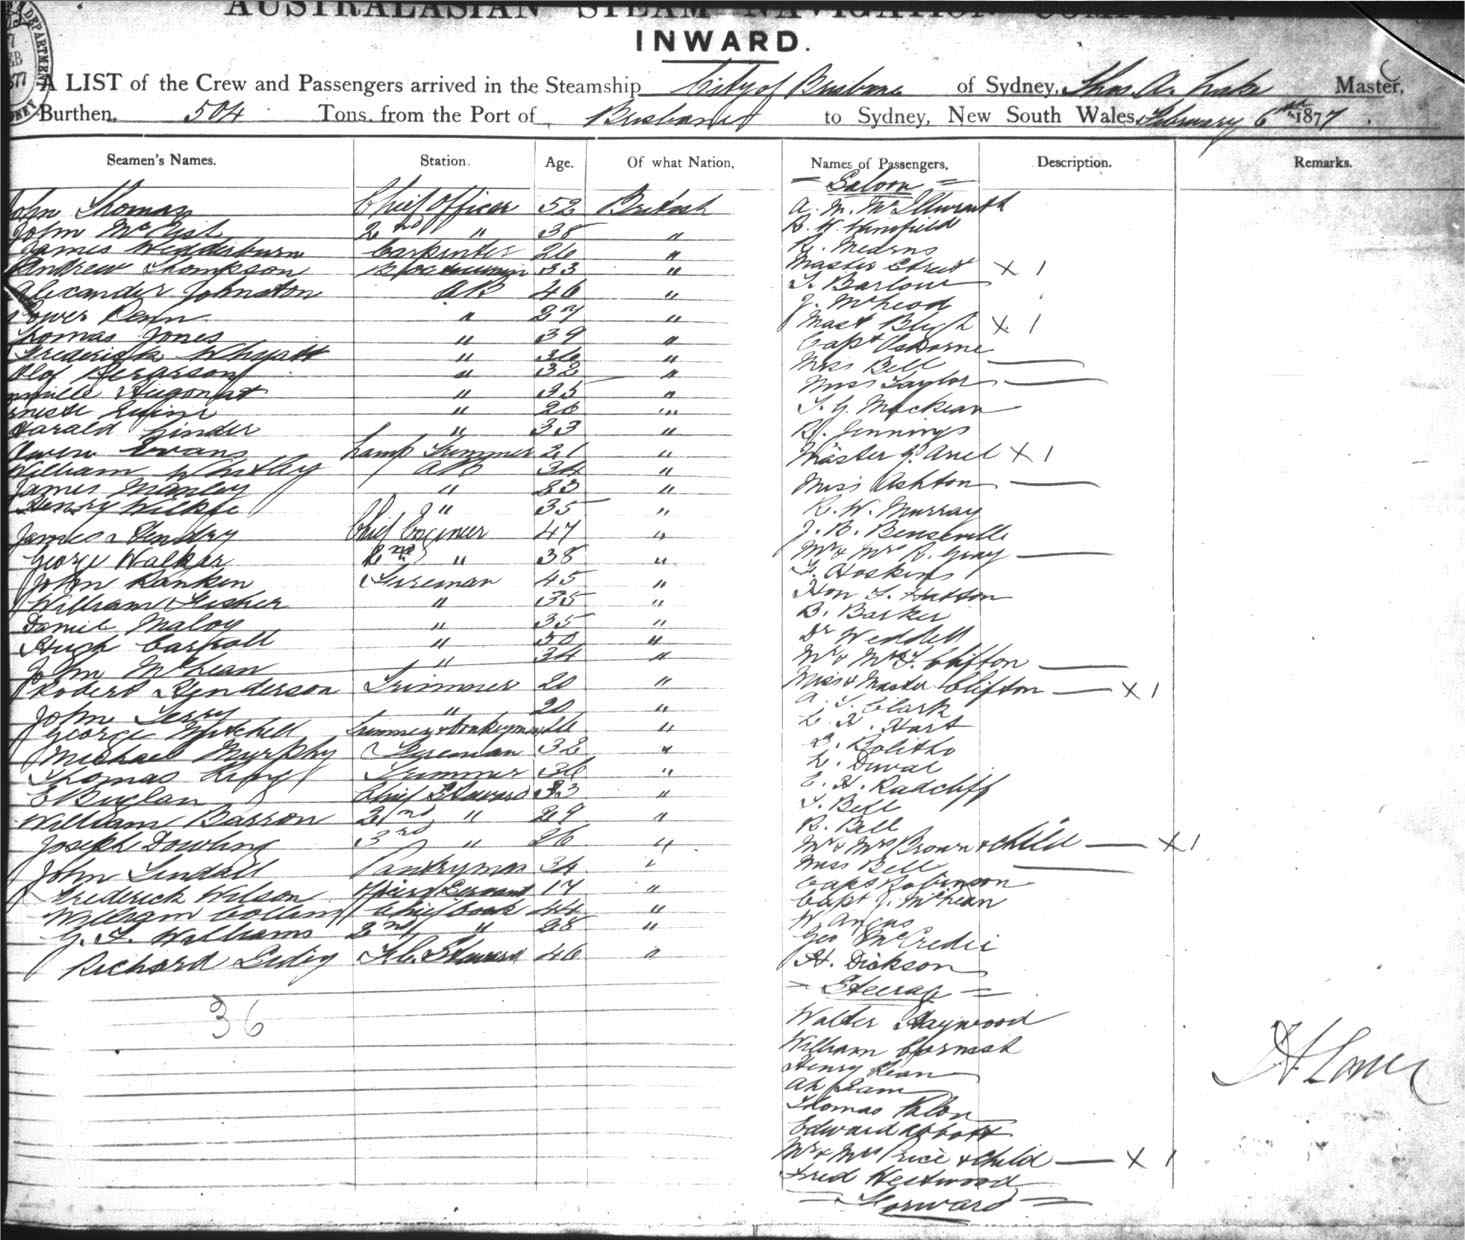 AUSTRALASIAN STEAM NAVIGATION COMPANY.
INWARD.
A LIST of the Crew and Passengers arrived in the Steamship City of Brisbane of Sydney, Thos. A. Lake Master,
Burthen, 504 Tons, from the Port of Brisbane to Sydney, New South Wales, February 6th 1877
Seamen's Names. Station. Age. Of what Nation,
John Thomas Chief Officer 52 British
John McNish 2nd " 38 "
James Wedderburn Carpenter 26 "
Andrew Thompson 33 "
Alexander Johnston AB 46 "
" 27 "
Thomas Jones " 39 "
Frederick Whyatt " 36 "
Olof " 32 "
" 35 "
" 26 "
Harald Ginder " 33 "
Owen Evans Lamp Trimmer 21 "
William Whitley AB 34 "
James Manley " 23 "
Henry Wilkie " 35 "
James Hendry Chief Engineer 47 "
George Walker 2nd " 38 "
John Rankin Fireman 45 "
William Fisher " 35 "
Daniel Maloy " 35 "
Hugh Carroll " 50 "
John McLean " 34 "
Robert Henderson Trimmer 20 "
John Terry " 20 "
George Mitchell Trimmer & Donkeyman 26 "
Michael Murphy Fireman 32 "
Thomas King Trimmer 36 "
E Buglan Chief Steward 33 "
William Barron 2nd " 29 "
Joseph Dowling 3rd " 26 "
John Tindall Pantryman 34 "
Frederick Wilson Servant 17 "
William Collins Chief Cook 44 "
G. F. Williams 2nd " 28 "
Richard F.C. Steward 46 "
36
Names of Passengers, Description. Remarks.
Saloon
A. M. McIllwraith
Mansfield
Master Street X 1
T. Barlow
J. McLeod
Mast Bligh X 1
Capt Osborne
Miss Bell
Miss Taylor
T. G. Mackean
Jennings
Master G. Ariel X 1
Miss Ashton
R. W. Murray
J. B.
Mr & Mrs A. Gray
T. Hoskins
Hon T. Hutton
B. Barker
Dr Weddell
Mr & Mrs T. Clifton
Miss & Master Clifton X 1
A. T. Clark
Hart
Bolitho
L. Duval
E. H. Radcliff
T. Bell
R. Bell
Mr & Mrs Brown & Child X 1
Miss Bell
Capt Robinson
Capt J. McLean
W Angus
Geo McCredie
H. Dickson
Steerage
Walter Haywood
William Cormack
Henry Kean
Ah Sam
Thomas
Edward Abbott
Mr & Mrs Price & Child X 1
Fred Westwood
Forward